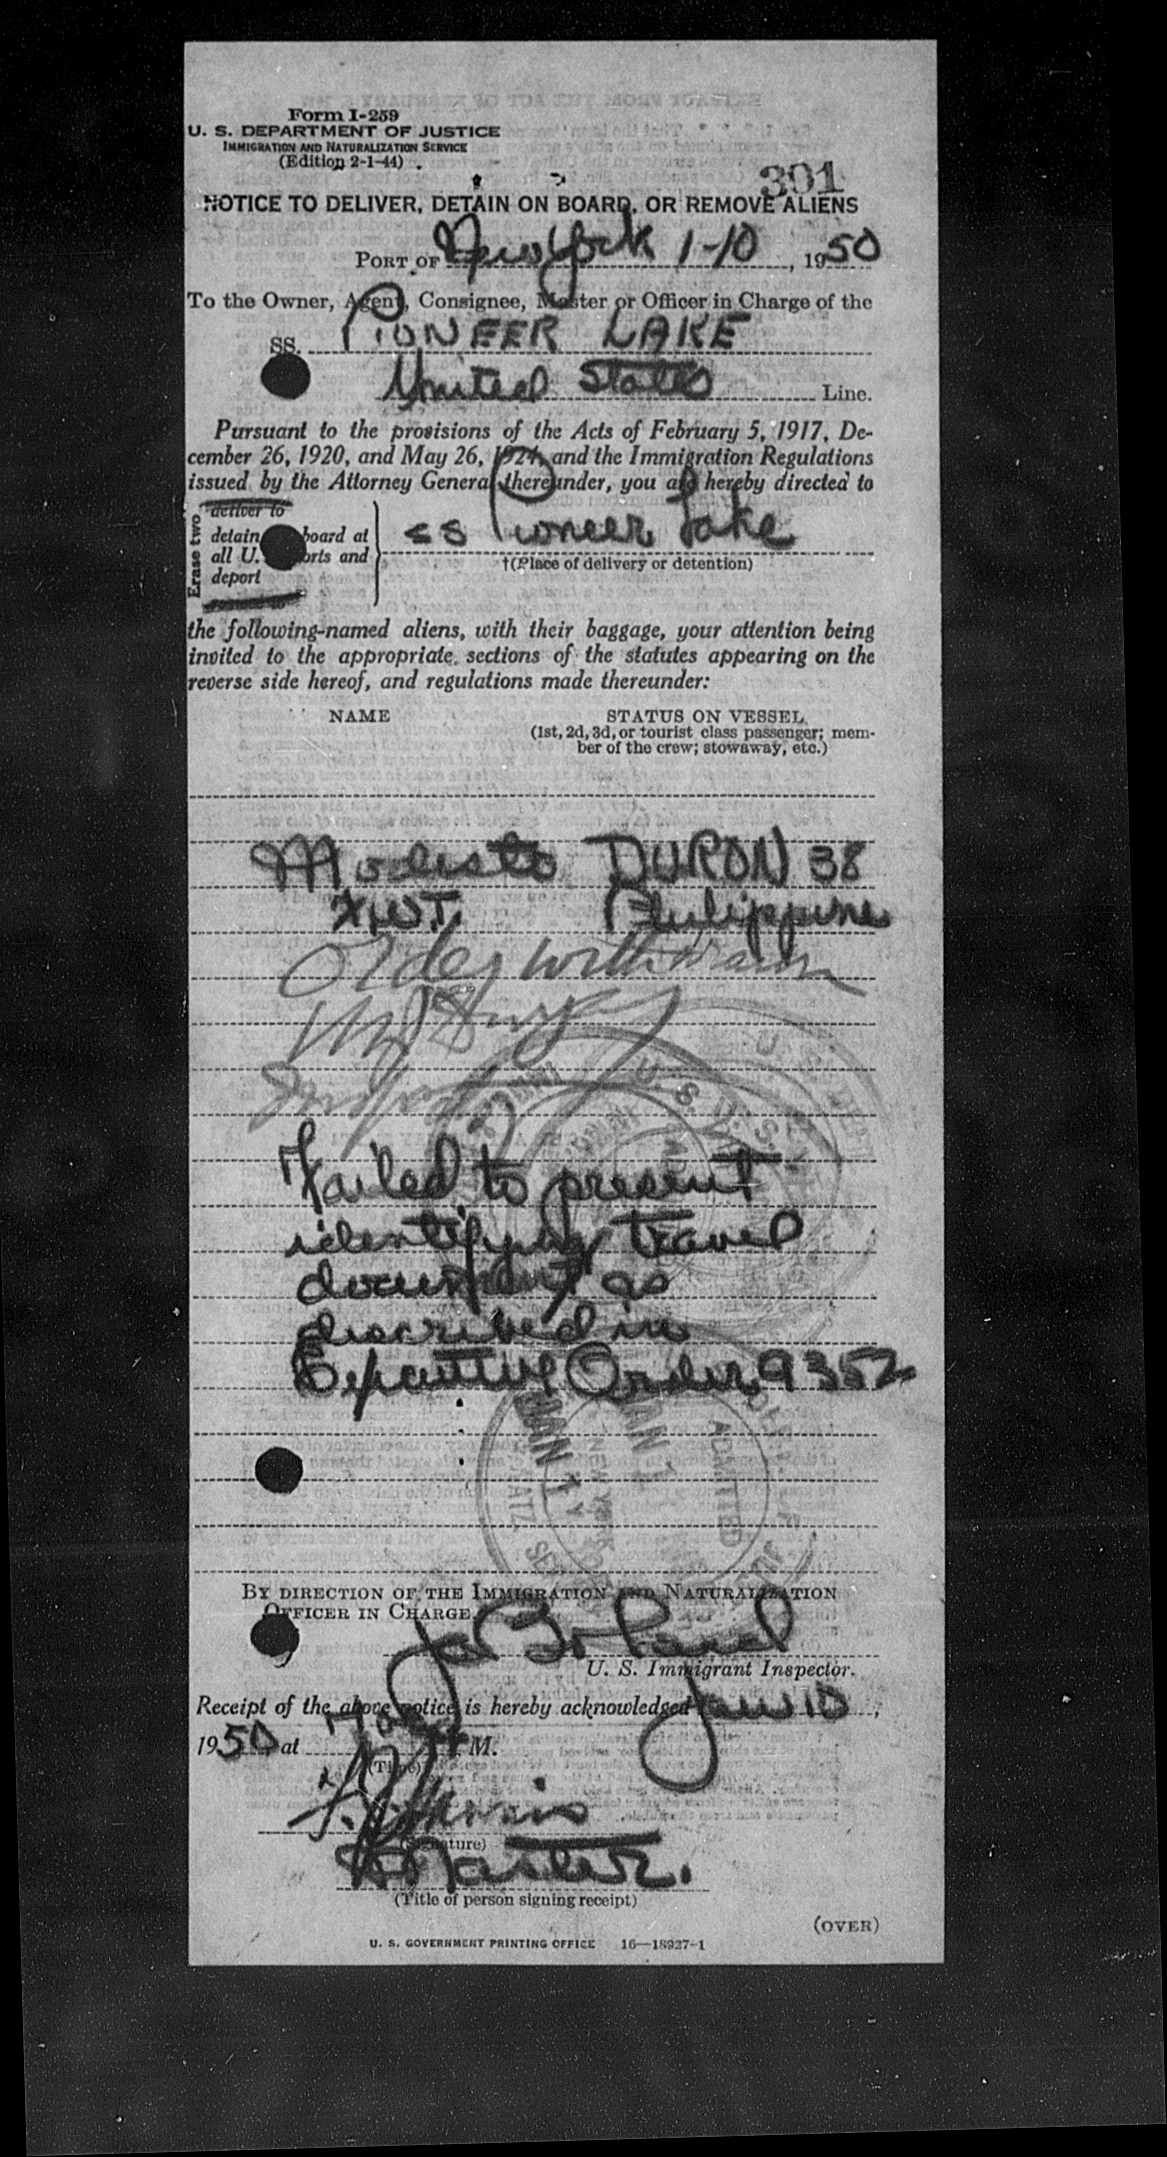 Form I-259
U. S. DEPARTMENT OF JUSTICE
IMMIGRATION AND NATURALIZATION SERVICE
(Edition 2-1-44)
301
NOTICE TO DELIVER, DETAIN ON BOARD, OR REMOVE ALIENS
PORT OF New York 1-10, 1950
To the Owner, Agent, Consignee, Master or Officer in Charge of the
SS. PIONEER LAKE
United States Line.
Pursuant to the provisions of the Acts of February 5, 1917, De-
cember 26, 1920, and May 26, 1924, and the Immigration Regulations
issued by the Attorney General thereunder, you are hereby directed to
Erase two
deliver to
detain board at
all U. ports and
deport
SS Pioneer Lake
†(Place of delivery or detention)
the following-named aliens, with their baggage, your attention being
invited to the appropriate sections of the statutes appearing on the
reverse side hereof, and regulations made thereunder:
NAME STATUS ON VESSEL
(1st, 2d, 3d, or tourist class passenger; mem-
ber of the crew; stowaway, etc.)
Modesto DURON 38
Philippine
Order withdrawn
Failed to present
identifying travel
document as
described in
Executive Order 9352
JAN 1
ADMITTED
BY DIRECTION OF THE IMMIGRATION AND NATURALIZATION
OFFICER IN CHARGE.
U. S. Immigrant Inspector.
Receipt of the above notice is hereby acknowledged Jan 10,
1950 at M.
(Time)
(Signature)
Master.
(Title of person signing receipt)
(OVER)
U. S. GOVERNMENT PRINTING OFFICE 16—18927-1